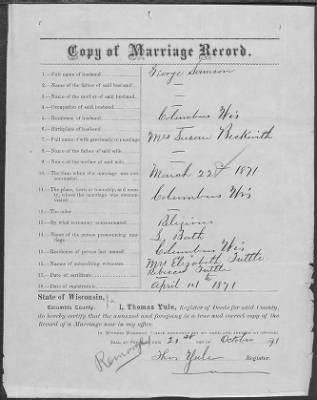 Copy of Marriage Record.
1.—Full name of husband George Samson
2.—Name of the father of said husband —
3.—Name of the mother of said husband —
4.—Occupation of said husband —
5.—Residence of husband Columbus Wis
6.—Birthplace of husband —
7.—Full name of wife previously to marriage Mrs Susan Beckwith
8.—Name of the father of said wife —
9.—Name of the mother of said wife —
10.—The time when the marriage was contracted March 22d 1871
11.—The place, town or township, and county, where the marriage was contracted Columbus Wis
12.—The color —
13.—By what ceremony contracted Religious
14.—Name of the person pronouncing marriage S. Bath
15.—Residence of person last named Columbus Wis
16.—Names of subscribing witnesses Mrs Elizabeth Tuttle
Rebecca Tuttle
17.—Date of certificate —
18.—Date of registration April 1st 1871
State of Wisconsin,
Columbia County. } ss
I, Thomas Yule, Register of Deeds for said County,
do hereby certify that the annexed and foregoing is a true and correct copy of the
Record of a Marriage now in my office.
day of October
Thos Yule Register.